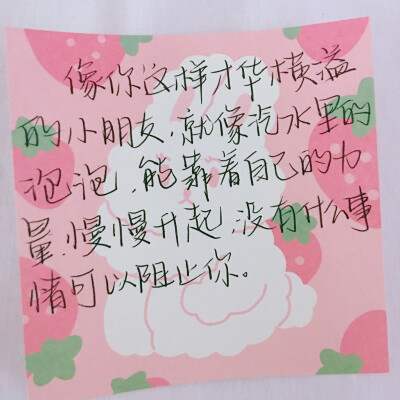 像你这样才华横溢
的小朋友,就像汽水里的
泡泡,能靠着自己的力
量,慢慢升起,没有什么事
情可以阻止你。